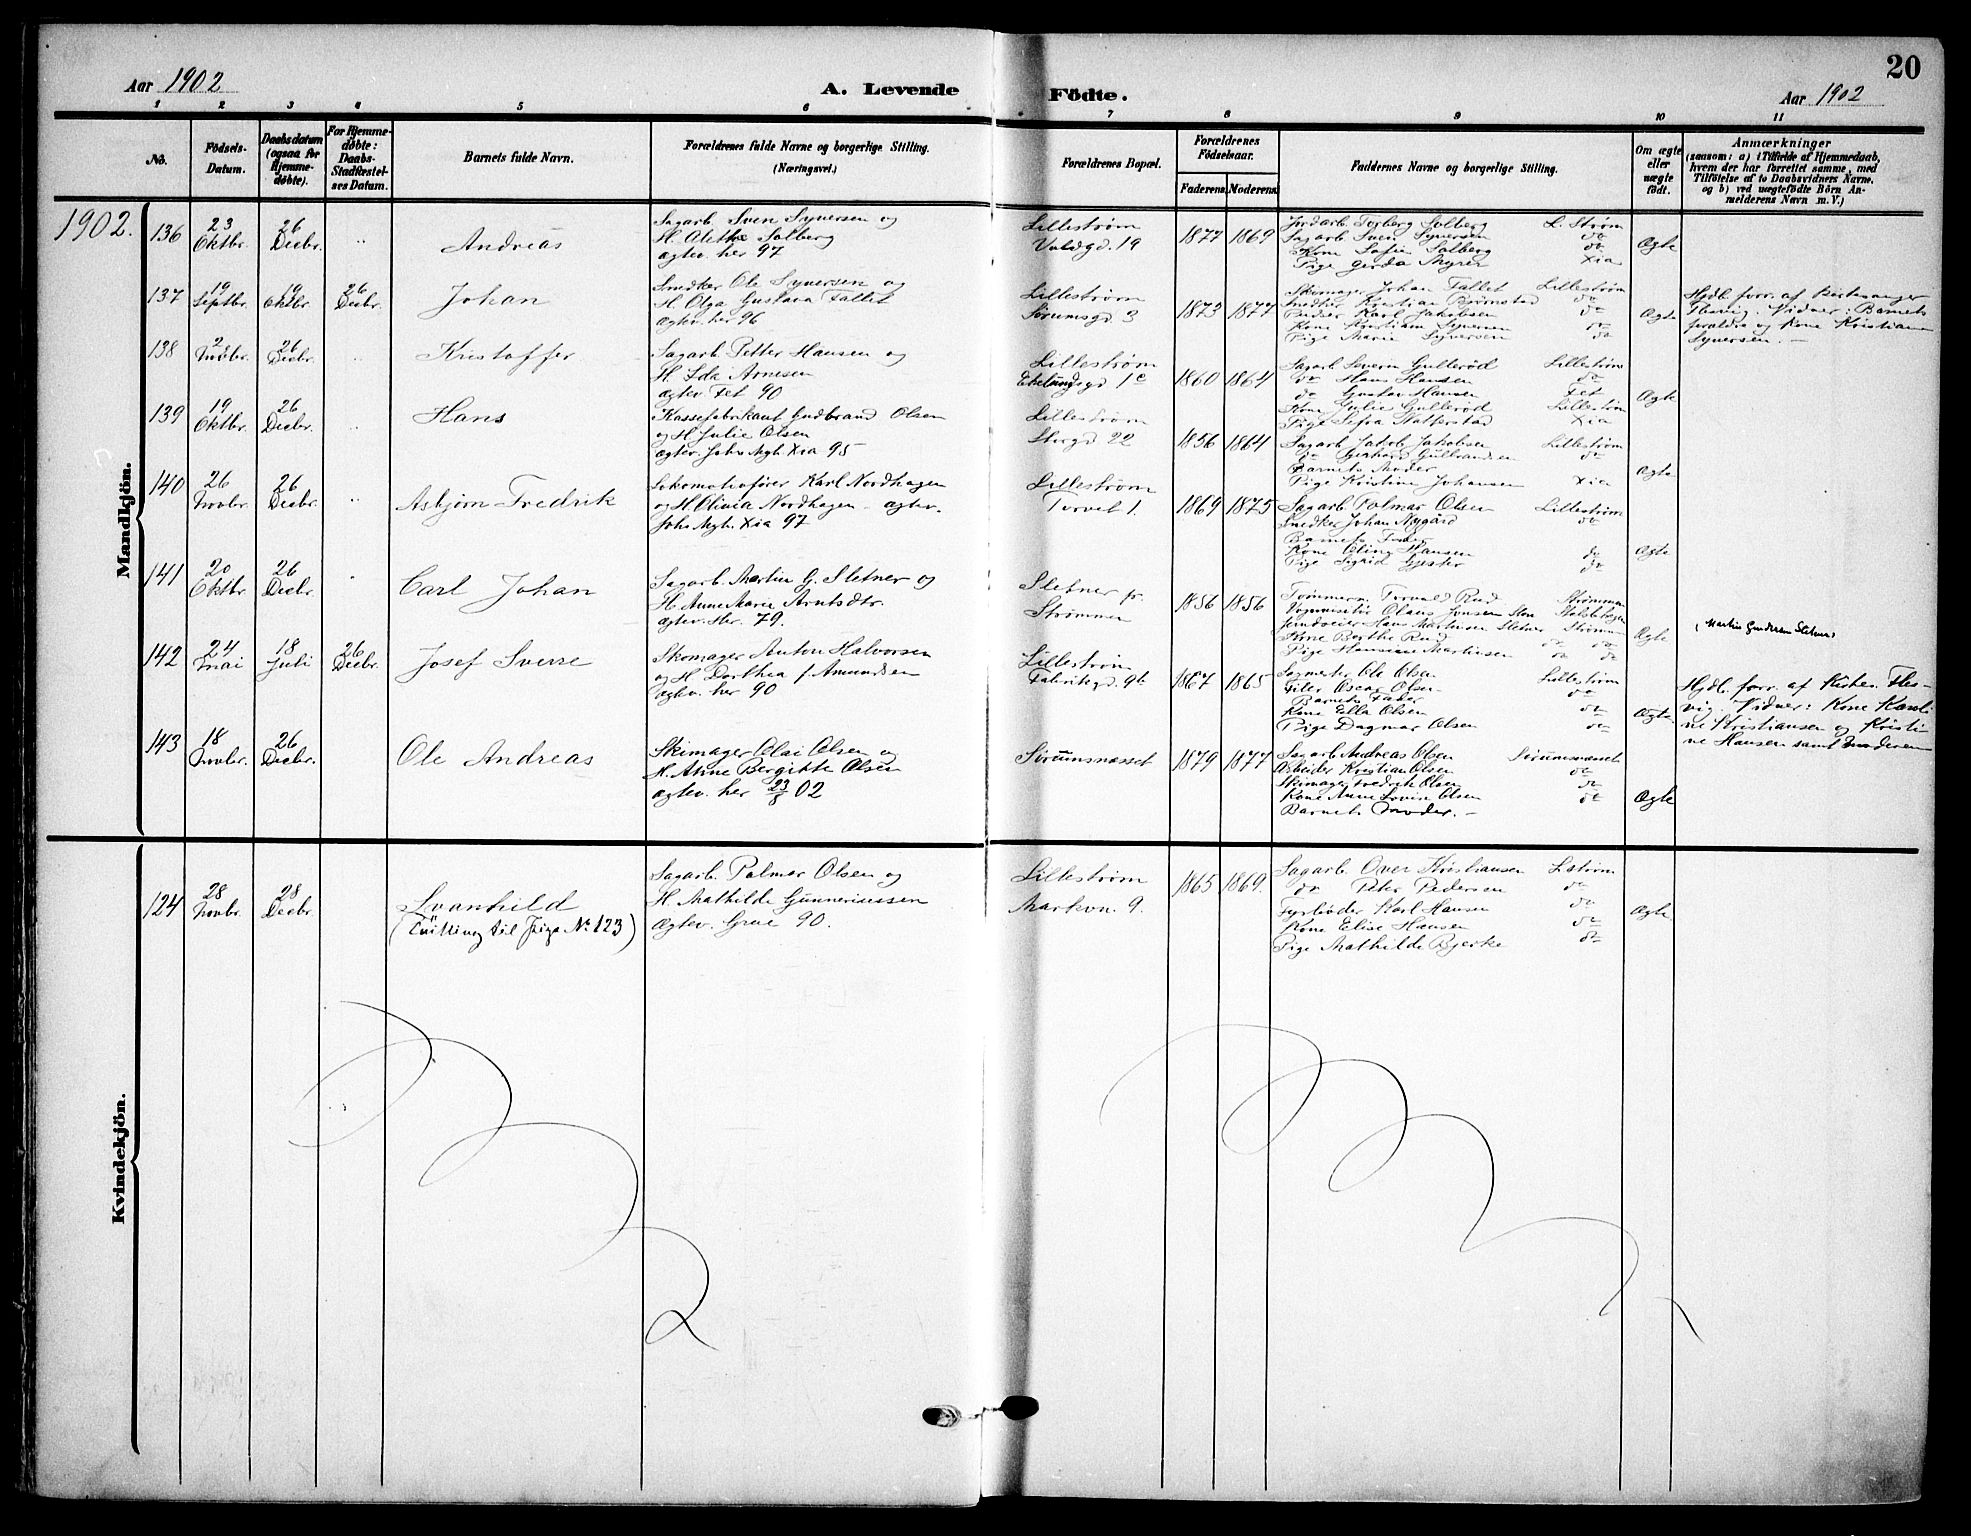 20
Aar 1902
A. Levende Födte.
Aar 1902
1 2 3 4 5 6 7 8 9 10 11
No.
Födsels-Datum.
Daabsdatum (ogsaa for Hjemme-döbte).
For Hjemme-döbte: Daabs-Stadfæstel-ses Datum.
Barnets fulde Navn.
Forældrenes fulde Navne og borgerlige Stilling.
(Næringsvei.)
Forældrenes Bopæl.
Forældrenes Födselsaar.
Faderens. Moderens.
Faddernes Navne og borgerlige Stilling.
Om ægte eller uægte födt.
Anmærkninger
(saasom: a) i Tilfælde af Hjemmedaab,
hvem der har forrettet samme, med
Tilföielse af to Daabsvidners Navne,
og b) ved uægtefödte Börn An-
melderens Navn m. V.)
Mandkjön.
1902.
136
23 Oktbr.
26 Decbr.
"
Andreas
Sagarb. Sven Syversen og
H. Alethe Solberg
ægtev. her 97
Lillestrøm
Voldgd. 19
1877 1869
Jordarb. Torberg Solberg L. Strøm
Sagarb. Sven Syversen do
Kone Sofie Solberg do
Pige Gerda Myrer Xia
Ægte
137
19 Septbr.
19 Oktbr.
26 Decbr.
Johan
Snedker Ole Syversen og
H. Olga Gustava Fallet
ægtev. her 96
Lillestrøm
Sørumsgd. 3
1873 1877
Skomager Johan Fallet Lillestrøm
Snedker Kristian Bjørnstad do
Karl Jakobsen do
Kone Kristiane Syversen do
Pige Marie Syversen do
Ægte
Hjdb. forr. af Kirkesanger
Flesvig. Vidner: Barnets
forældre og Kone Kristiane
Syversen. —
138
2 Novbr.
26 Decbr.
"
Kristoffer
Sagarb. Petter Hansen og
H. Ida Arnesen
ægtev. Fet 90
Lillestrøm
1860 1864
Sagarb. Severin Gullerød Lillestrøm
do Hans Hansen do
do Gustav Hansen Fet
Kone Julie Gullerød Lillestrøm
Pige Xia
Ægte
139
19 Oktbr.
26 Decbr.
"
Hans
Kassefabrikant Gudbrand Olsen
og H. Julie Olsen
ægtev. Johs Mgh. Xia 95
Lillestrøm
Storgd 22
1856 1864
Sagarb. Jakob Jakobsen Lillestrøm
do Gerhard Gulbrandsen do
Barnets Moder
Pige Kristine Johansen Xia
Ægte
140
26 Novbr.
26 Decbr.
"
Asbjørn Fredrik
Lokomotivfører Karl Nordhagen
og H. Olivia Nordhagen – ægtev.
Johs Mgh. Xia 97
Lillestrøm
Torvet 1.
1869 1875
Sagarb. Palmar Olsen Lillestrøm
Snedker Johan Nygård do
Barnets Fader
Kone Oline Hansen do
Pige Sigrid do
Ægte
141
20 Oktbr.
26 Decbr.
"
Carl Johan
Sagarb. Martin G. Sletner og
H. Anne Marie Arntsdtr.
ægtev. 79.
Sletner pr.
Strømmen
1856 1856
Tømmerm. Torvald Rud Strømmen
Olaus Jensen
Hans Martinsen Sletner Strømm
Kone Berthe Rud do do
Pige Hansine Martinsen do do
Ægte
(Martin Gundersen Sletner)
142
24 Mai
18 Juli
26 Decbr.
Josef Sverre
Skomager Anton Halvorsen
og H. Dorthea f. Amundsen
ægtev. her 90
Lillestrøm
Fabrikgd. 9b
1867 1865
Sagmester Ole Olsen Lillestrøm
Filer Oscar Olsen do
Barnets Fader
Kone Ella Olsen do
Pige Dagmar Olsen do
Ægte
Hjdb. forr. af Kirkes. Fles-
vig. Vidner: Kone Karoli-
ne Kristiansen og Kristi-
ne Hansen samt Moderen
143
18 Novbr.
26 Decbr.
Ole Andreas
Skimager Olai Olsen og
H. Anne Bergitte Olsen
ægtev. her 23/8 02
Sørumsnæsset
1879 1877
Sagarb. Andreas Olsen Sørumsnæsset
Arbeider Kristian Olsen do
Skimager Fredrik Olsen do
Kone Anne Lovise Olsen do
Barnets Moder. —
Ægte
Kvindekjön.
124
28 Novbr.
28 Decbr.
Svanhild
(Tvilling til Pige No 123)
Sagarb. Palmer Olsen og
H. Mathilde Gunneriussen
ægtev. Grue 90.
Lillestrøm
Markvn. 9.
1865 1869.
Sagarb. Over Kristiansen Lstrøm
do Peter Pedersen do
Fyrbøder Karl Hansen do
Kone Elise Hansen do
Pige Mathilde Bjerke do
Ægte